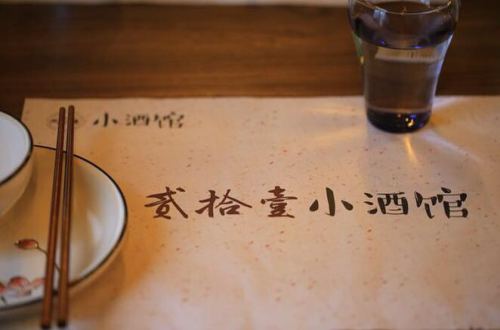 小酒馆
贰拾壹小酒馆